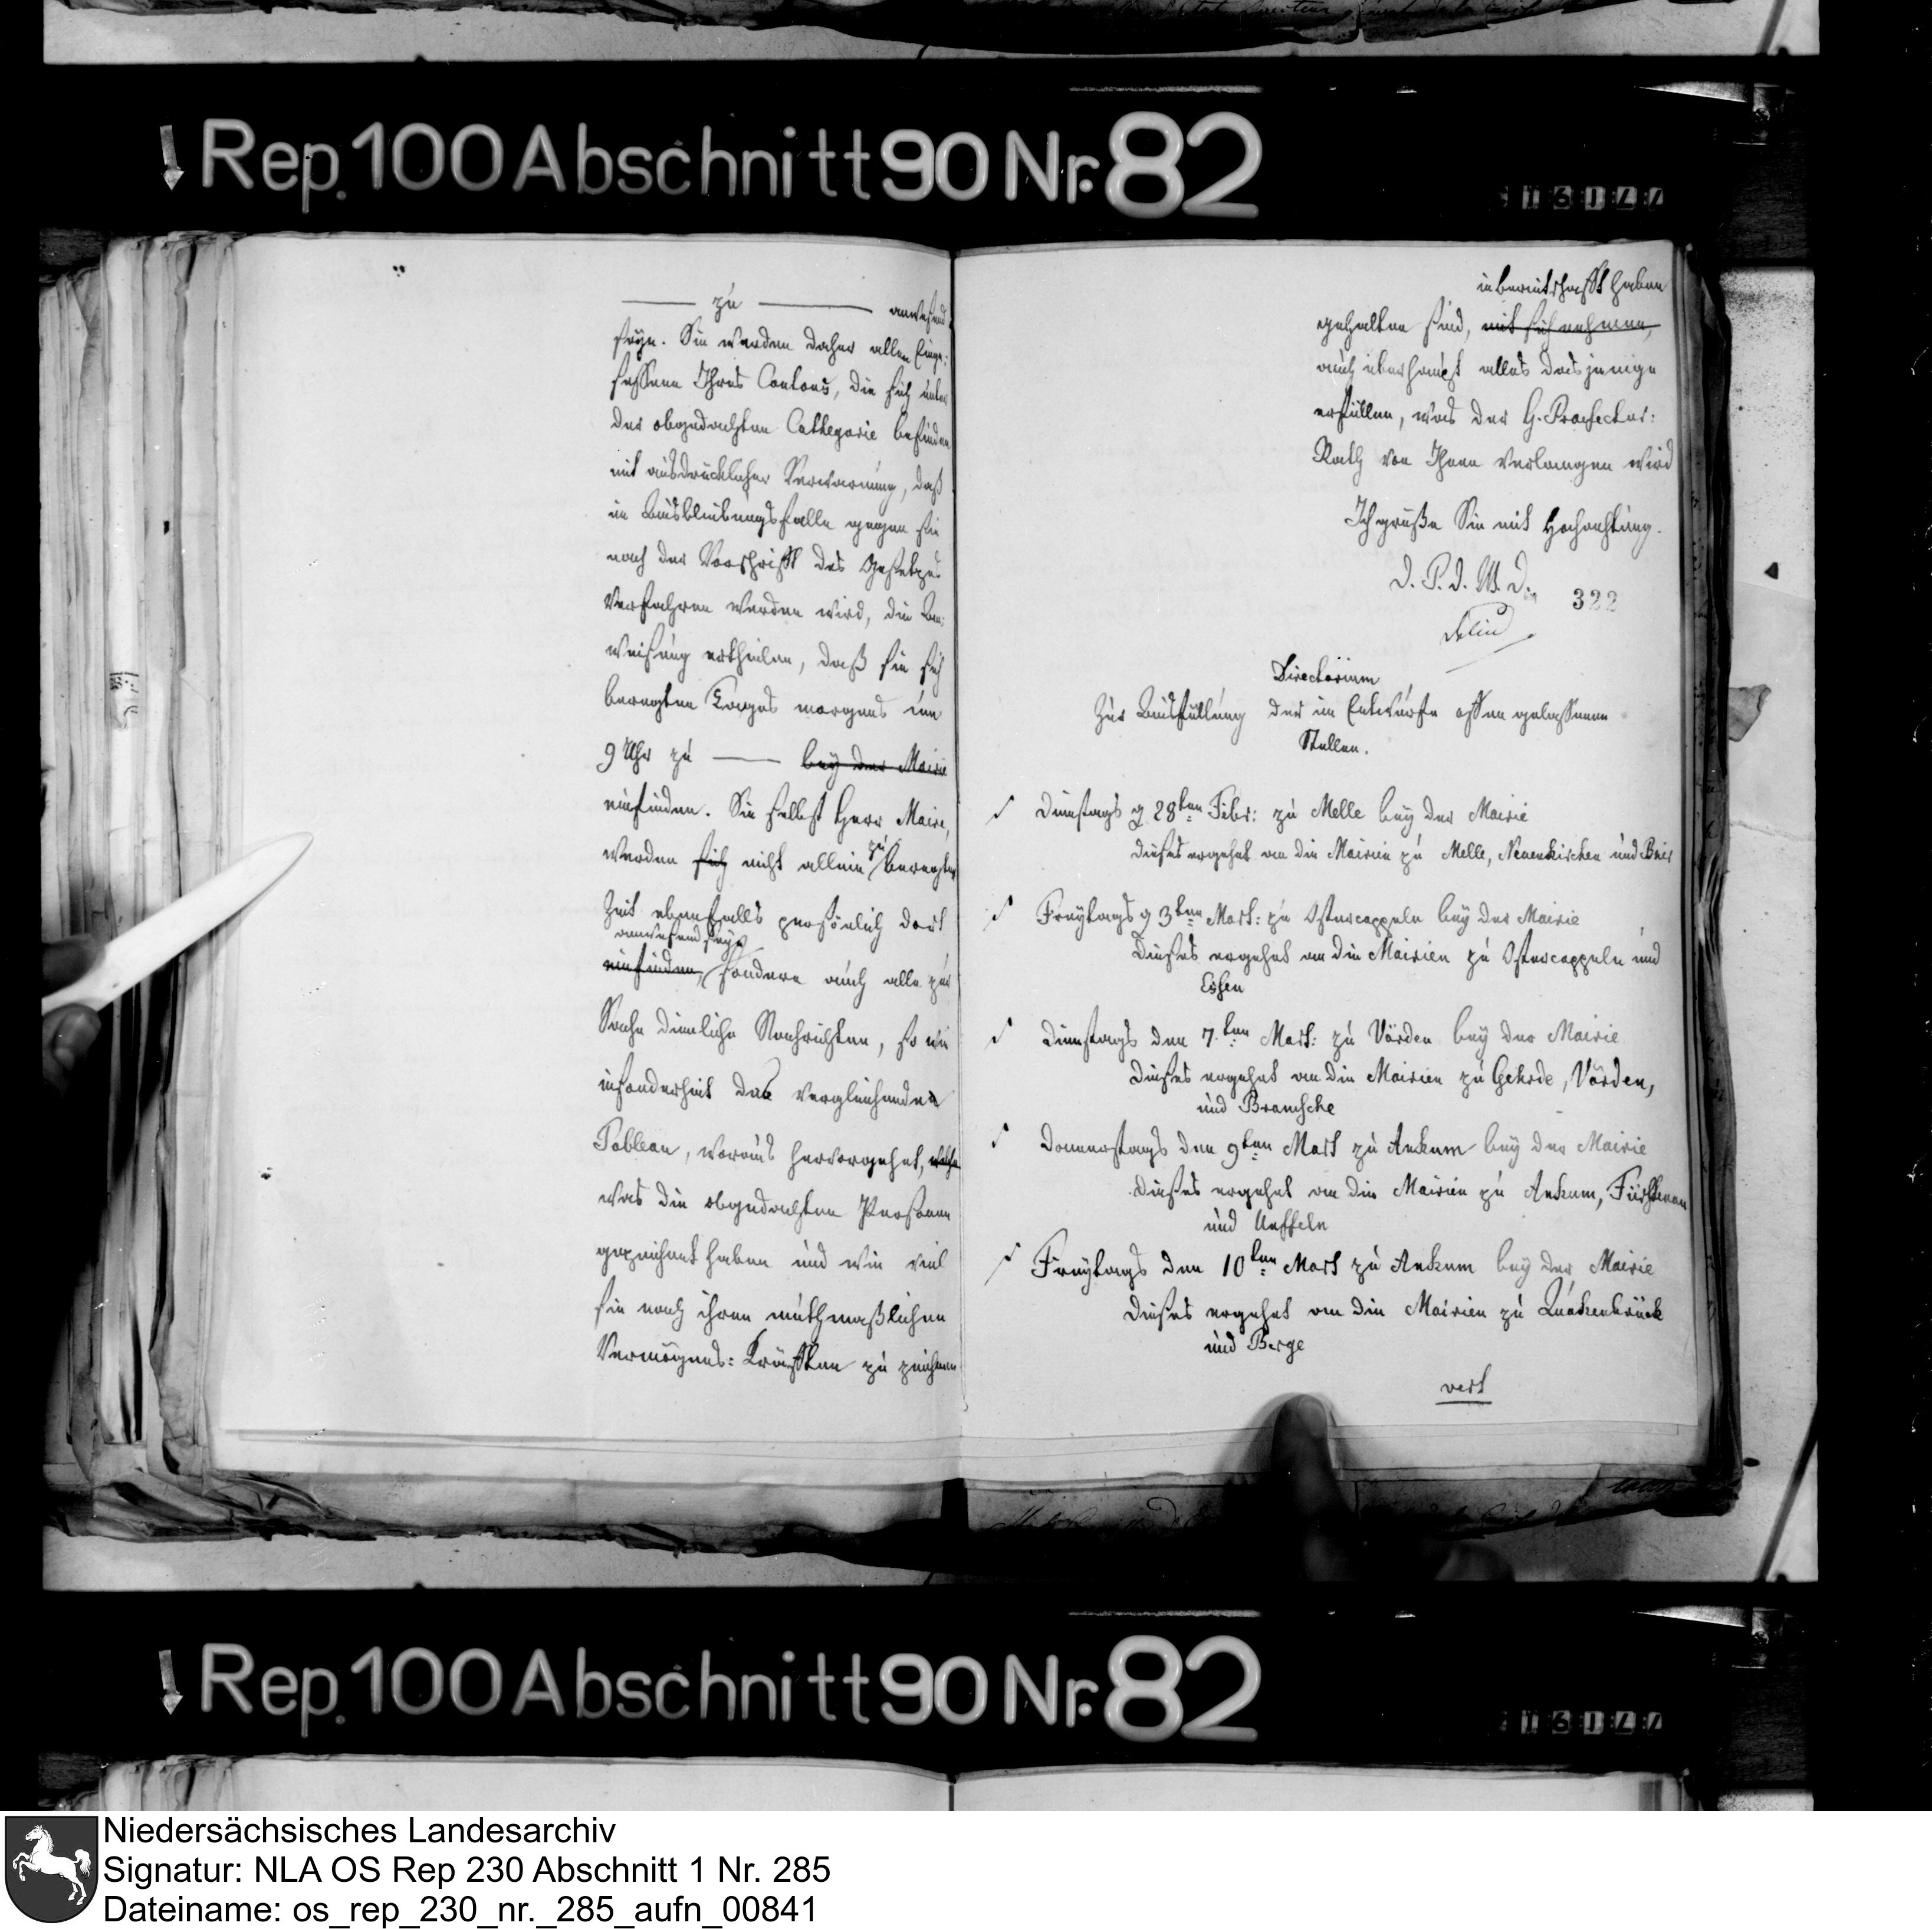 Rep. 100 Abschnitt 90 Nr. 82
zu anwesend
seyn. Sie werden daher allen Einge-
sessenen Ihres Cantons, die sich unter
der obgedachten Cathegorie befinden
mit ausdrücklicher Verwarnung, daß
im Ausbleibungsfalle gegen sie
nach der Vorschrifft des Gesetzes
verfahren werden wird, die An-
weisung ertheilen, daß sie sich
beregten Tages morgens um
9 Uhr zu bey der Mairie
einfinden. Sie selbst Herr Maire,
werden sich nicht allein zu beregter
Zeit ebenfalls persönlich dort
anwesend seyn
einfinden, sondern auch alle zur
Sache dienliche Nachrichten, so wie
insonderheit das vergleichende
Tableau, woraus hervorgehet, welche
was die obgedachten Personen
gezeichnet haben und wie viel
sie nach ihren muthmaßlichen
Vermögens: Kräfften zu zeichnen
in bereitschafft haben
gehalten sind, mit sich nehmen,
auch überhaupt alles dasjenige
erfüllen, was der H. Praefectur:
Rath von Ihnen verlangen wird
Ich grüße Sie mit Hochachtung.
D. P. d. W. D.
322
Directorium
Zur Ausfüllung der im Entwurfe offen gelassenen
Stellen.
Dienstags d 28ten Febr: zu Melle bey der Mairie
dieses ergehet an die Mairien zu Melle, Neuenkirchen und Buer
Freytags d 3ten Mart: zu Ostercappeln bey der Mairie
Dieses ergehet an die Mairien zu Ostercappeln und
Essen
Dienstags den 7ten Mart: zu Vörden bey der Mairie
Dieses ergehet an die Mairien zu Gehrde, Vörden,
und Bramsche
Donnerstags den 9ten Mart zu Ankum bey der Mairie
Dieses ergehet an die Mairien zu Ankum, Fürstenau
und Ueffeln
Freytags den 10ten Mart zu Ankum bey der Mairie
Dieses ergehet an die Mairien zu Quakenbrück
und Berge
vert
Rep. 100 Abschnitt 90 Nr. 82
Niedersächsisches Landesarchiv
Signatur: NLA OS Rep 230 Abschnitt 1 Nr. 285
Dateiname: os_rep_230_nr._285_aufn_00841